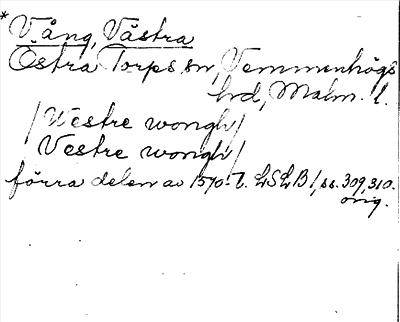 * V.ång, Västra
Östra Torps sn, Vemmenhögs
hd, Malm. l.
/Westre wongh/
Vestre wongh/
förra delen av 1570-t. LSLB 1, ss. 309, 310.
orig.